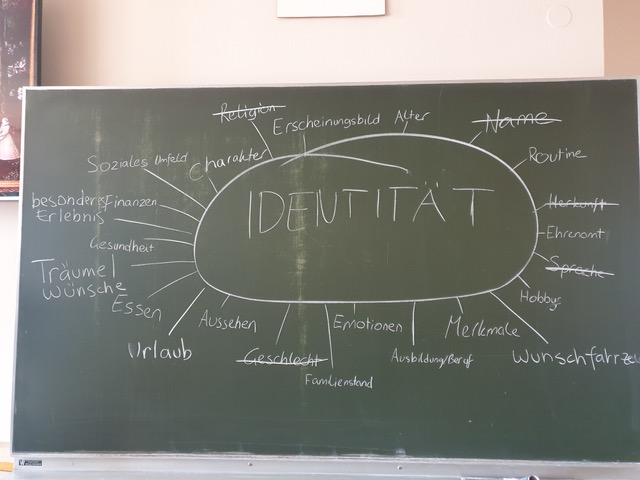 Religion
Erscheinungsbild
Alter
Name
Soziales Umfeld
Charakter
Routine
besonderes Finanzen
Erlebnis
IDENTITÄT
Herkunft
Ehrenamt
Gesundheit
Sprache
Träume/
wünsche
Essen
Hobbys
Aussehen
Emotionen
Merkmale
Urlaub
Geschlecht
Ausbildung/Beruf
Wunschfahrzeu
Familienstand